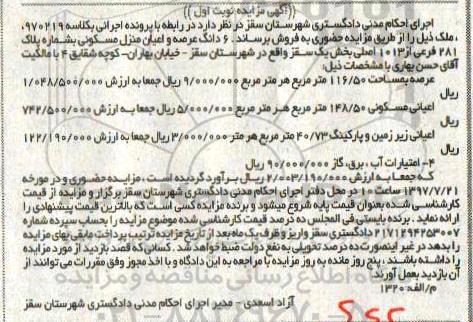 ((آگهی مزایده نوبت اول))
اجرای احکام مدنی دادگستری شهرستان سقز در نظر دارد در رابطه با پرونده اجرائی بکلاسه ۹۷۰۲۱۹
، ملک ذیل را از طریق مزایده حضوری به فروش برساند. ۶ دانگ عرصه و اعیان منزل مسکونی بشماره پلاک
۲۸۱ فرعی از ۱۰۱۳ اصلی بخش یک سقز واقع در شهرستان سقز - خیابان بهاران- کوچه شقایق ۴ با مالکیت
آقای حسن بهاری با مشخصات ذیل:
عرصه بمساحت ۱۱۶/۵۰ متر مربع هر متر مربع ۹/۰۰۰/۰۰۰ ریال جمعا به ارزش ۱/۰۴۸/۵۰۰/۰۰۰
ریال
اعیانی مسکونی ۱۴۸/۵۰ متر مربع هر متر مربع ۵/۰۰۰/۰۰۰ ریال جمعا به ارزش ۷۴۲/۵۰۰/۰۰۰
ریال
اعیانی زیر زمین و پارکینگ ۴۰/۷۳ متر مربع هر متر ۳/۰۰۰/۰۰۰ ریال جمعا به ارزش ۱۲۲/۱۹۰/۰۰۰
ریال
۴- امتیازات آب ، برق، گاز ۹۰/۰۰۰/۰۰۰ ریال
که جمعا به ارزش ۲/۰۰۳/۱۹۰/۰۰۰ ریال برآورد گردیده است ، مزایده حضوری و در مورخه
۱۳۹۷/۷/۲۱ ساعت ۱۰ در محل دفتر اجرای احکام مدنی دادگستری شهرستان سقز برگزار و مزایده از قیمت
کارشناسی شده بعنوان قیمت پایه شروع میشود و برنده مزایده کسی است که بالاترین قیمت پیشنهادی را
ارائه نماید . برنده بایستی فی المجلس ده درصد قیمت کارشناسی شده موضوع مزایده را بحساب سپرده شماره
۲۱۷۱۲۹۴۲۵۳۰۰۷ دادگستری سقز واریز و ظرف یک ماه بعد از تاریخ مزایده ترتیب پرداخت مابقی بهای مزایده
را بدهد در غیر اینصورت ده درصد تحویلی به نفع دولت ضبط خواهد شد . کسانی که قصد بازدید از مورد مزایده
را داشته باشند ، پنج روز مانده به روز مزایده با مراجعه به این دادگاه و با اخذ مجوز وفق مقررات می توانند از
آن بازدید بعمل آورند
م/الف: ۱۳۲۰
آزاد اسعدی - مدیر اجرای احکام مدنی دادگستری شهرستان سقز